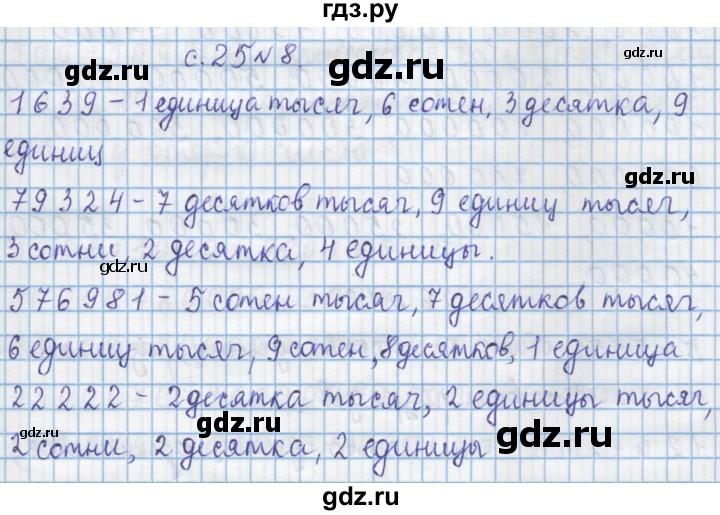 гдз.ру
с.25 №8.
gdz.ru gdz.ru gdz.ru
1639 – 1 единица тысяч, 6 сотен, 3 десятка, 9
единиц
gdz.ru gdz.ru
79324 – 7 десятков тысяч, 9 единиц тысяч,
3 сотни, 2 десятка, 4 единицы.
gdz.ru gdz.ru
576981 – 5 сотен тысяч, 7 десятков тысяч,
gdz.ru gdz.ru
6 единиц тысяч, 9 сотен, 8 десятков, 1 единица
22222 – 2 десятка тысяч, 2 единицы тысяч,
gdz.ru gdz.ru
2 сотни, 2 десятка, 2 единицы
gdz.ru